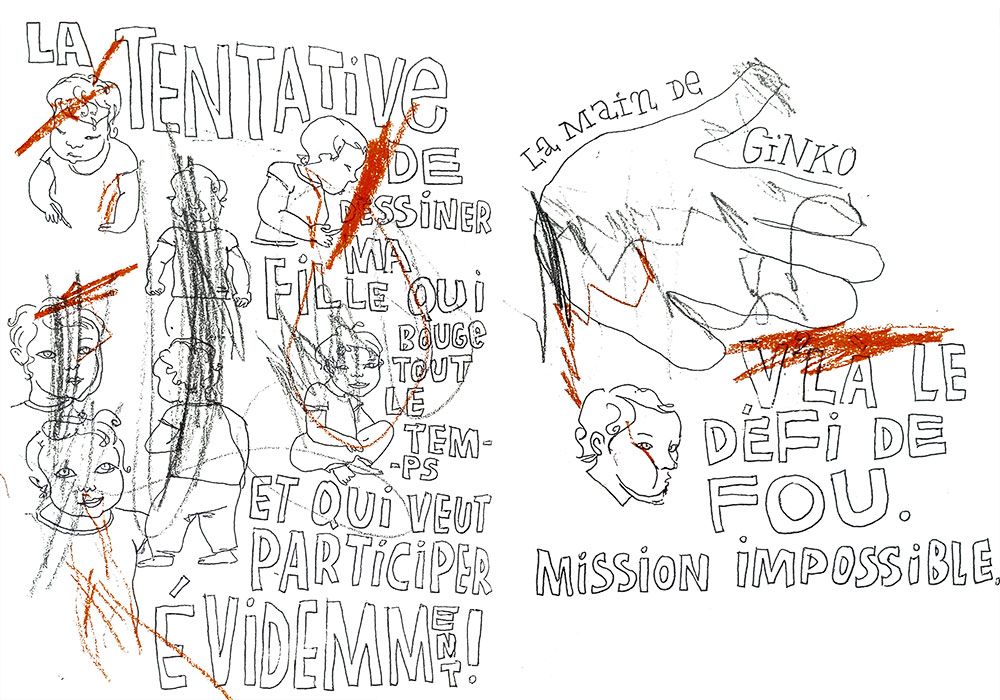 LA TENTATiVe
DE
DESSiNER
MA
FiLLE QUi
BOUGE
TOUT
LE
TEM-
-PS
ET QUi VEUT
PARTiCiPER
ÉViDEMMENT!
La Main De
GiNKO
V'LÀ LE
DÉFi DE
FOU.
MiSSiON iMPOSSiBLE.